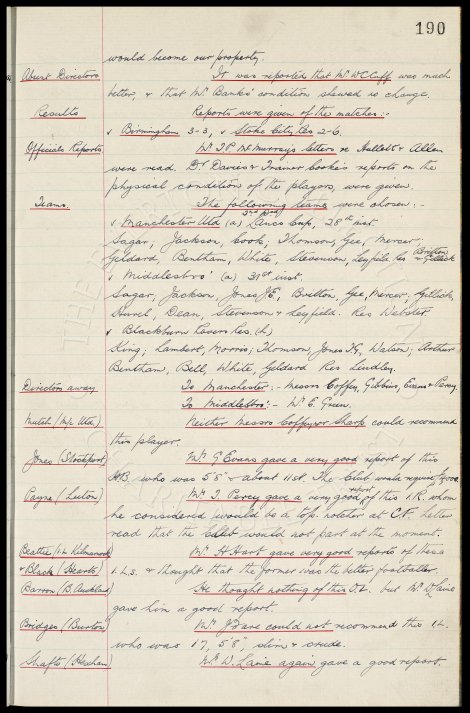 190
would become our property.
Absent Directors It was reported that Mr. W.C. Cuff was much
better, & that Mr. Banks' condition shewed no change.
Results Reports were given of the matches :-
v Birmingham 3-3, v Stoke City Res 2-6.
Officials Reports Mr. T.P. McMurray's letters re Hullett & Allen
were read. Dr. Davies & Trainer Cooke's reports on the
physical condition of the players, were given.
Teams. The following teams were chosen :-
v Manchester Utd (a) Lancs Cup, 28th inst.
Sagar, Jackson, Cook; Thomson, Gee, Mercer;
Geldard, Bentham, White, Stevenson, Leyfield Res Britton & Gillick
v Middlesbro' (a) 31st inst.
Sagar, Jackson, Jones J.E; Britton, Gee, Mercer; Gillick,
Hurel, Dean, Stevenson & Leyfield. Res Webster
v Blackburn Rovers Res. (h)
King; Lambert, Morris; Thomson, Jones T.G, Watson; Arthur
Bentham, Bell, White, Geldard Res Lindley.
Directors away To Manchester :- Messrs Coffey, Gibbins, Evans & Percy.
To Middlesbro' :- Mr. E. Green.
Mutch (M/c Utd.) Neither Messrs Coffey nor Sharp could recommend
this player.
Jones (Stockport) Mr. G. Evans gave a very good report of this
H.B. who was 5'8" & about 11st. The Club wd require
Payne (Luton) Mr. T. Percy gave a very good report of this I.R. whom
he considered would be a top-notcher at C.F. Letter
read that the Club would not part at the moment.
Beattie (I.L. Kilmarnock) Mr. H. Hart gave very good reports of these
& Black (Hearts) I.L.s. & thought that the former was the better footballer.
Barron (B. Auckland) He thought nothing of this O.L. but Mr. W. Lavie
gave him a good report.
Bridges (Burton) Mr. J. Fare could not recommend this I.L.
who was 17, 5'8", slim & crude.
Shafto (Hexham) Mr. W. Lavie again gave a good report.